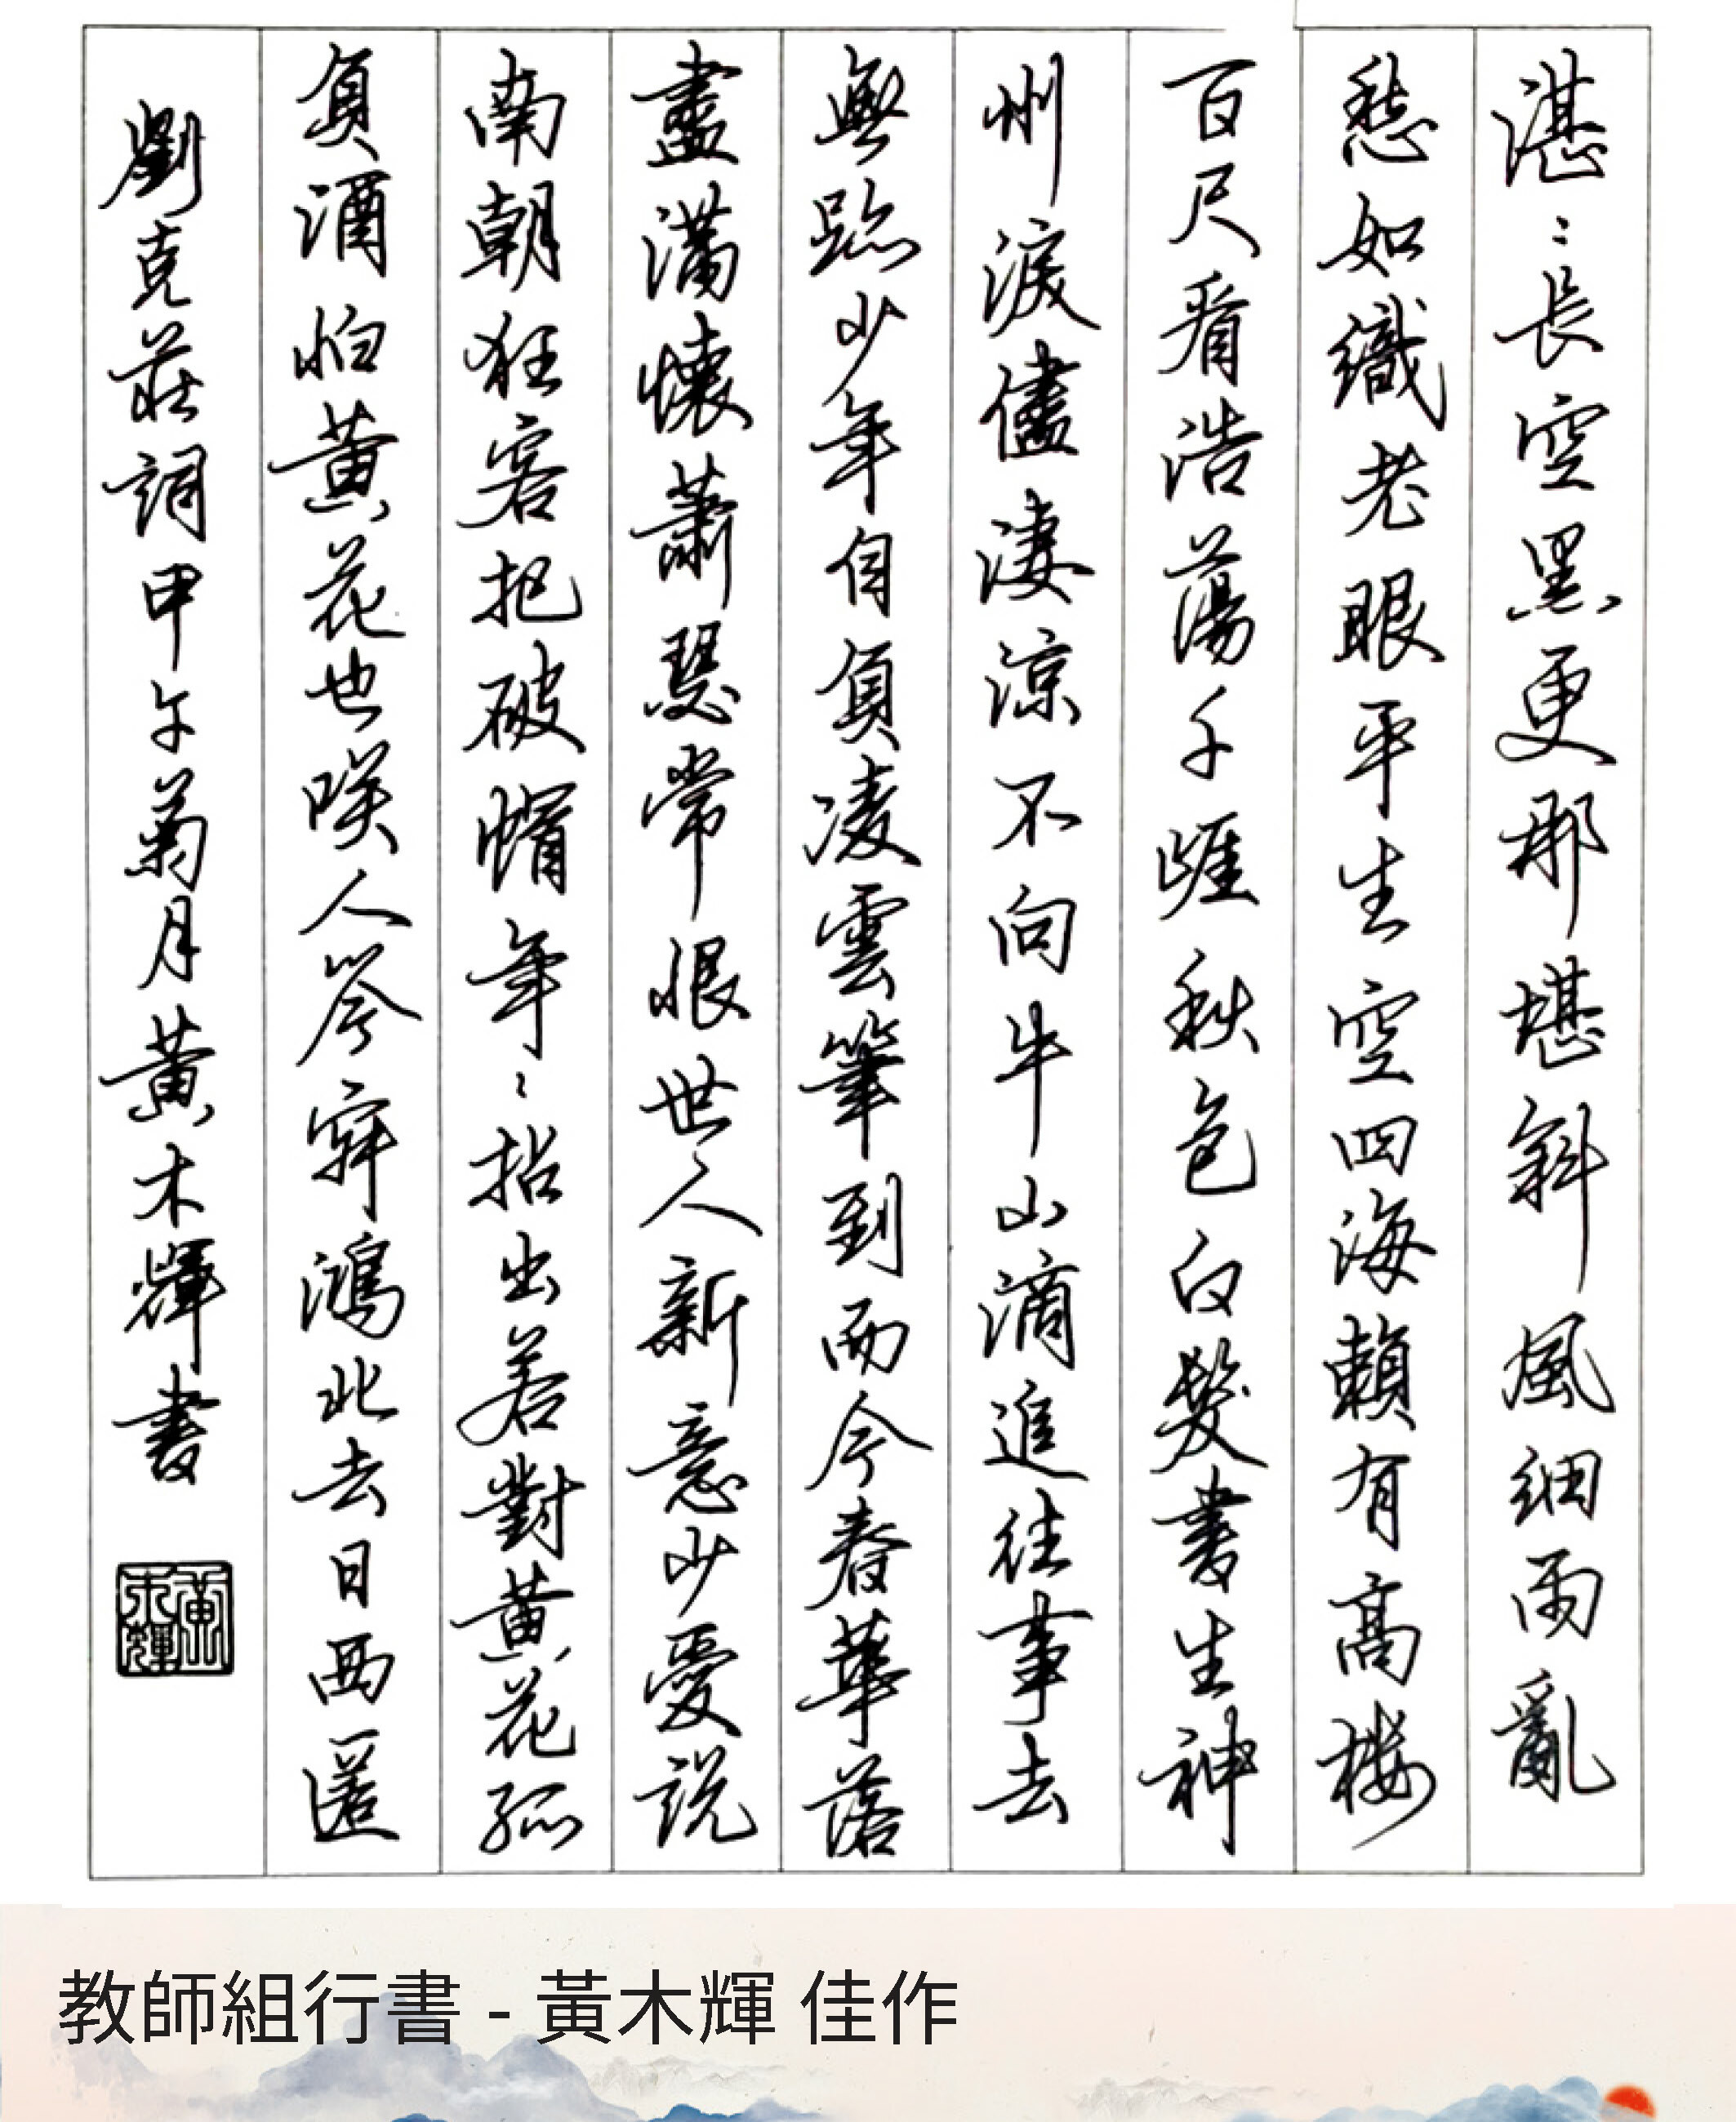 湛〻長空黑更那堪斜風細雨亂
愁如織老眼平生空四海賴有高樓
百尺看浩蕩千崖秋色白髮書生神
州淚儘淒涼不向牛山滴進往事去
無跡少年自負凌雲筆到而今春華落
盡滿懷蕭瑟常恨世人新意少愛說
南朝狂客把破帽年〻拈出若對黃花孤
負酒怕黃花也咲人岑寂鴻北去日西匿
劉克莊詞甲午菊月黃木輝書
黃木輝
教師組行書 - 黃木輝 佳作